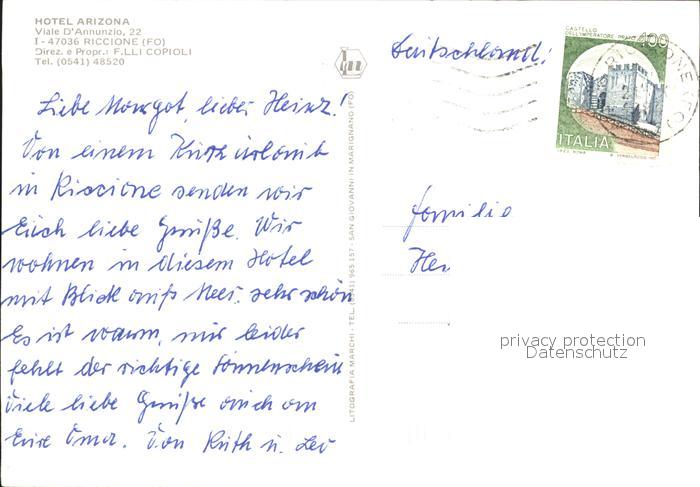 HOTEL ARIZONA
Viale D'Annunzio, 22
I - 47036 RICCIONE (FO)
Direz. e Propr.: F.LLI COPIOLI
Tel. (0541) 48520
Liebe Margot, lieber Heinz!
Von einem Kurzurlaub
in Riccione senden wir
Euch liebe Grüße. Wir
wohnen in diesem Hotel
mit Blick aufs Meer. sehr schön
Es ist warm, nur leider
fehlt der richtige Sonnenschein
Viele liebe Grüße auch an
Eure Oma. Von Ruth u. Leo
LITOGRAFIA MARCHI - TEL. (0541) 965.157 - SAN GIOVANNI IN MARIGNANO (FO)
Deutschland!
CASTELLO
DELL'IMPERATORE PRATO
400
ITALIA
RICCIONE (FO)
Familie
privacy protection
Datenschutz